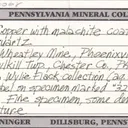 PENNSYLVANIA MINERAL COL
opper with malachite coa
uartz.
Wheatley Mine, Phoenixvi
lkill Twp, Chester Co., P
. Wylie Flack collection (ag
bel on specimen marked "32
Fine specimen, some de
ture.
NINGER DILLSBURG, PENNS